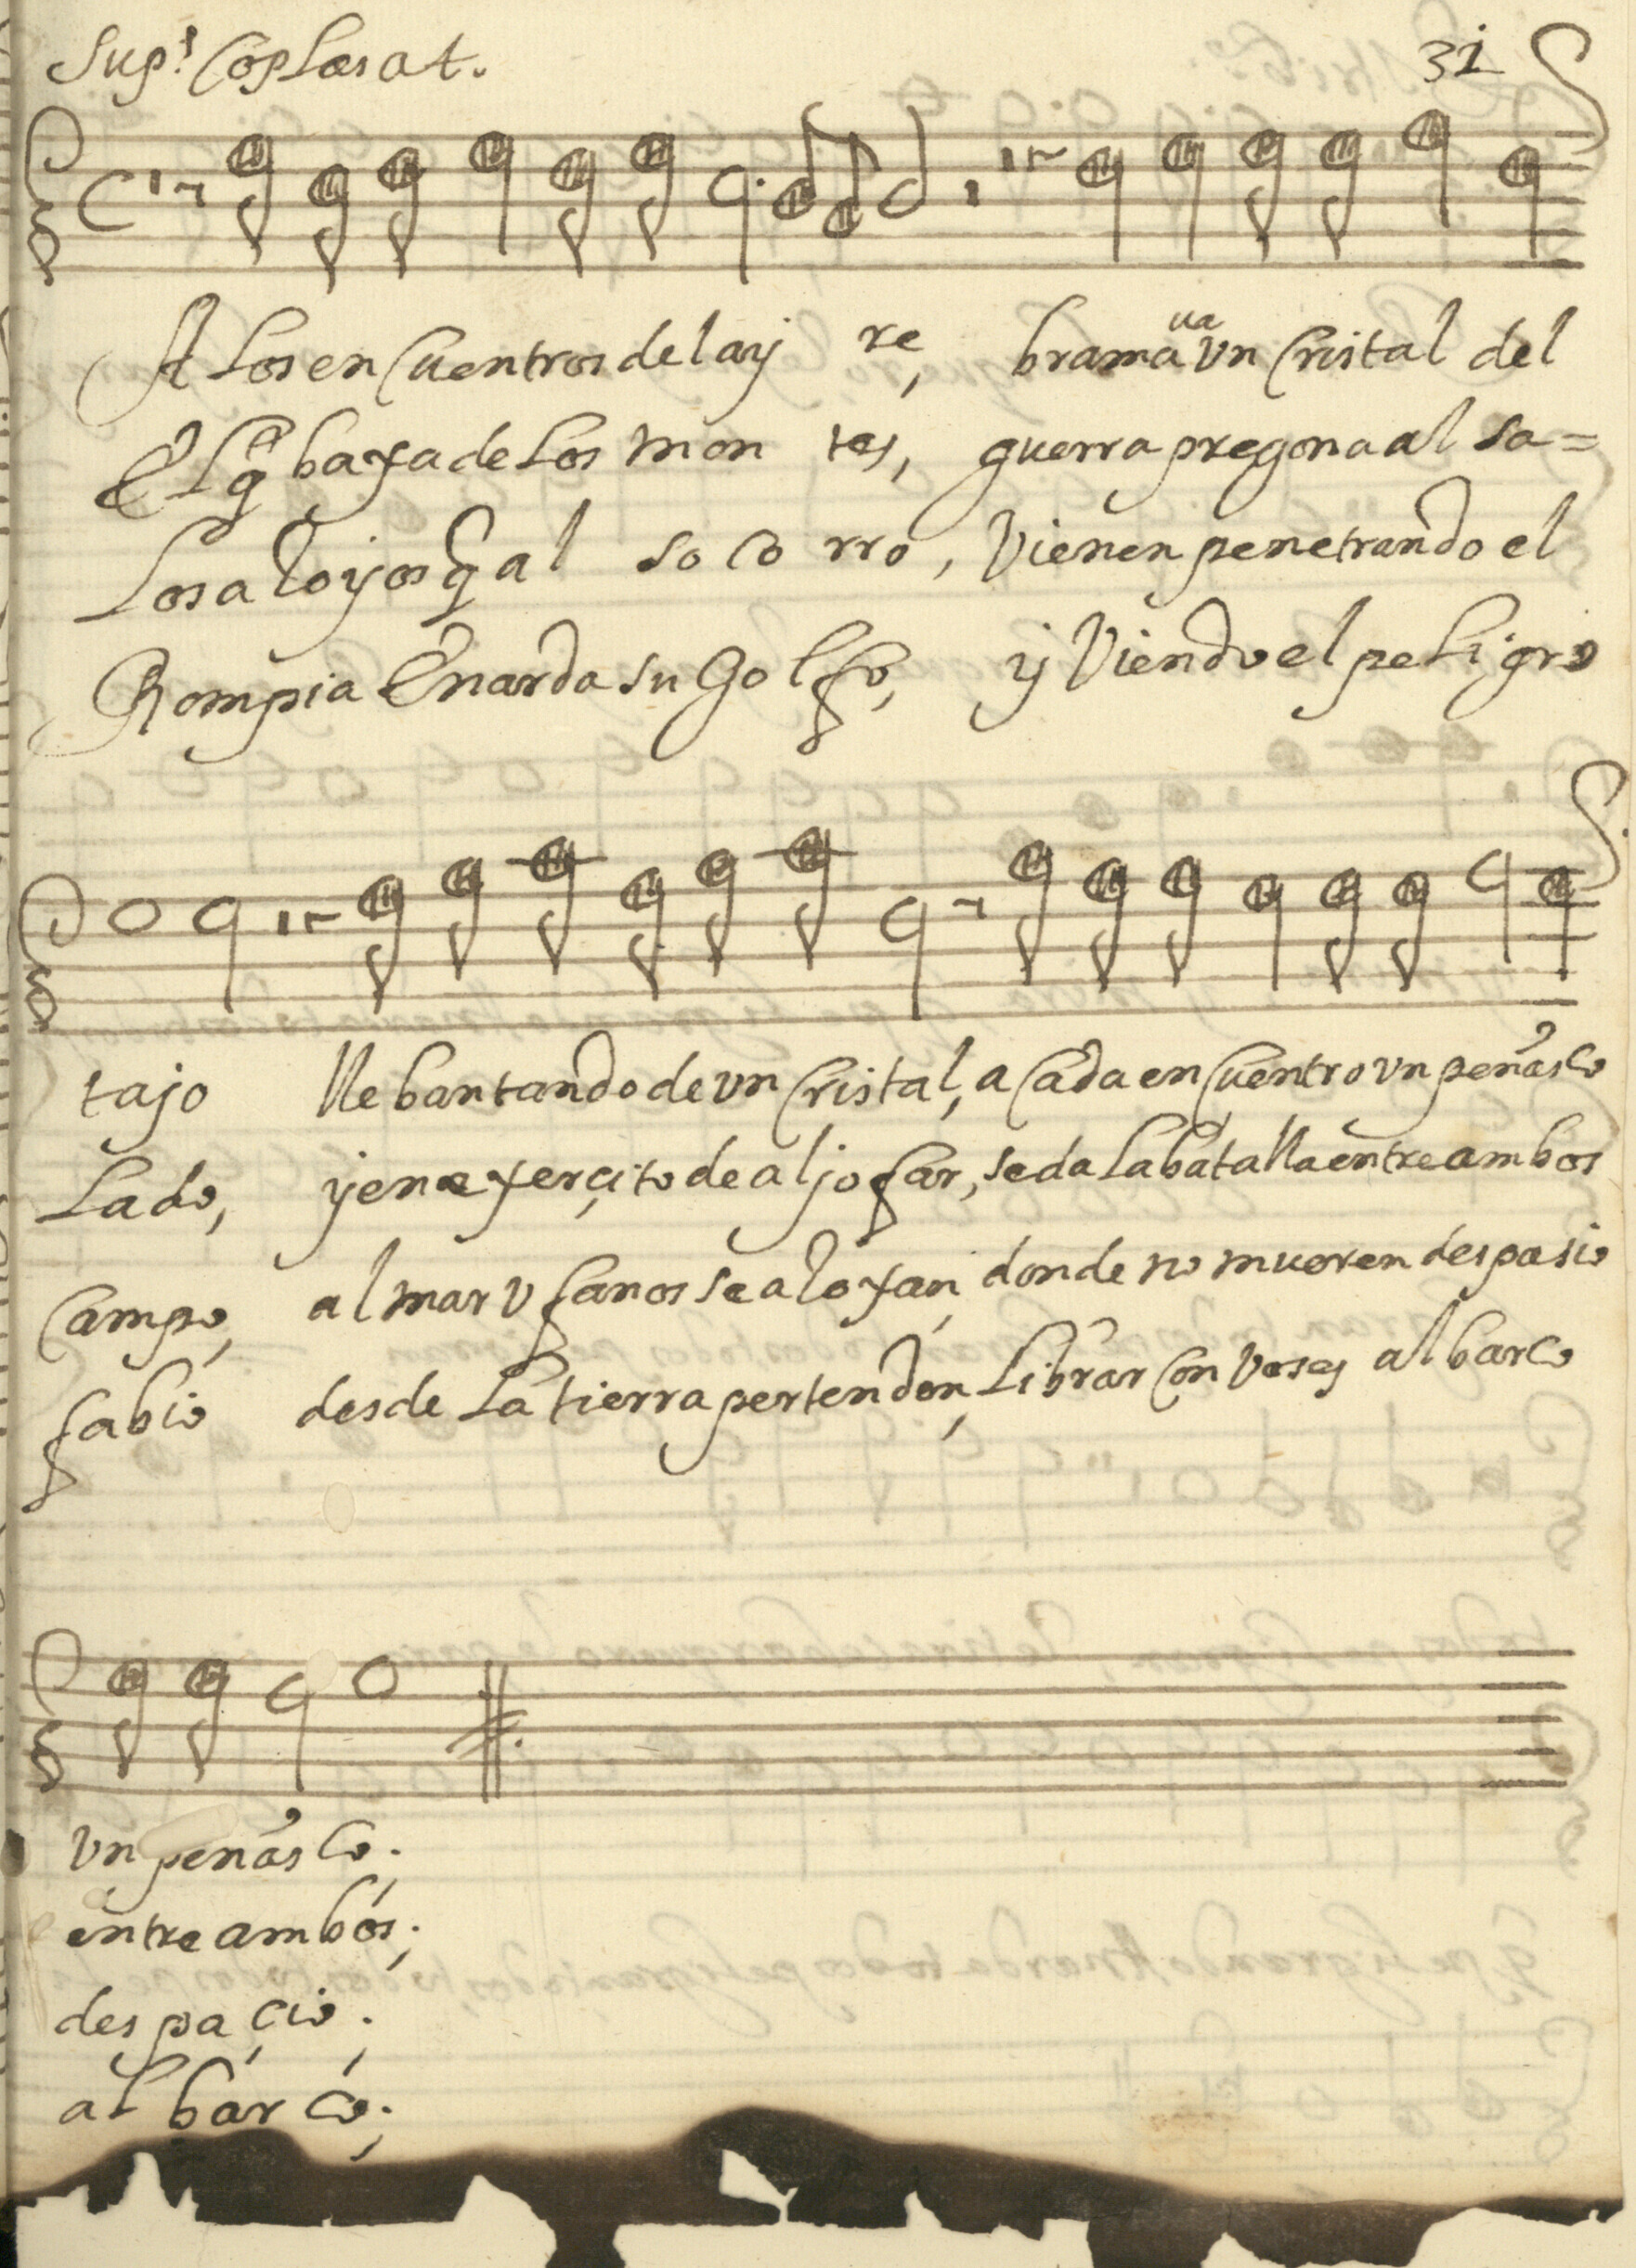 Sup.s Coplas a 4. 31
A los en cuentros del ay re, bramaua vn Cristal del
El q̃ baxa de los mon tes, guerra pregona al sa=
Los aloyos q̃ al so co rro, Vienen penetrando el
Rompia Enarda su Golfo, y Viendo el peligro
tajo llebantando de vn Cristal, a Cada en Cuentro vn peñasco
Lado, y en exerçito de aljofar, se da la batalla entre ambos
Campo, al mar vfanos se aloxan, donde no mueren despasio
fabio desde La tierra pertenden, Librar Con Voses al barco
vn peñasco.
entre ambos.
despaçio.
al barco.